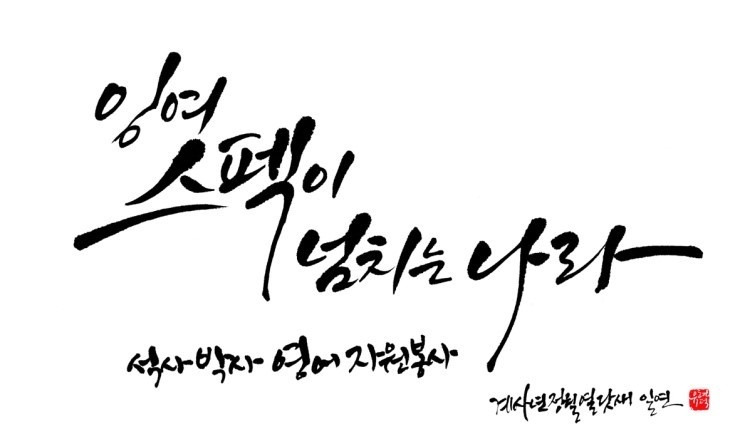 잉여
스펙이
넘치는 나라
석사 박사 영어 자원봉사
계사년 정월 열닷새 일연